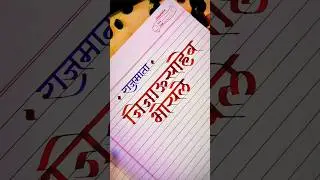 राजमाता
जिजाऊसाहेब
भोसले